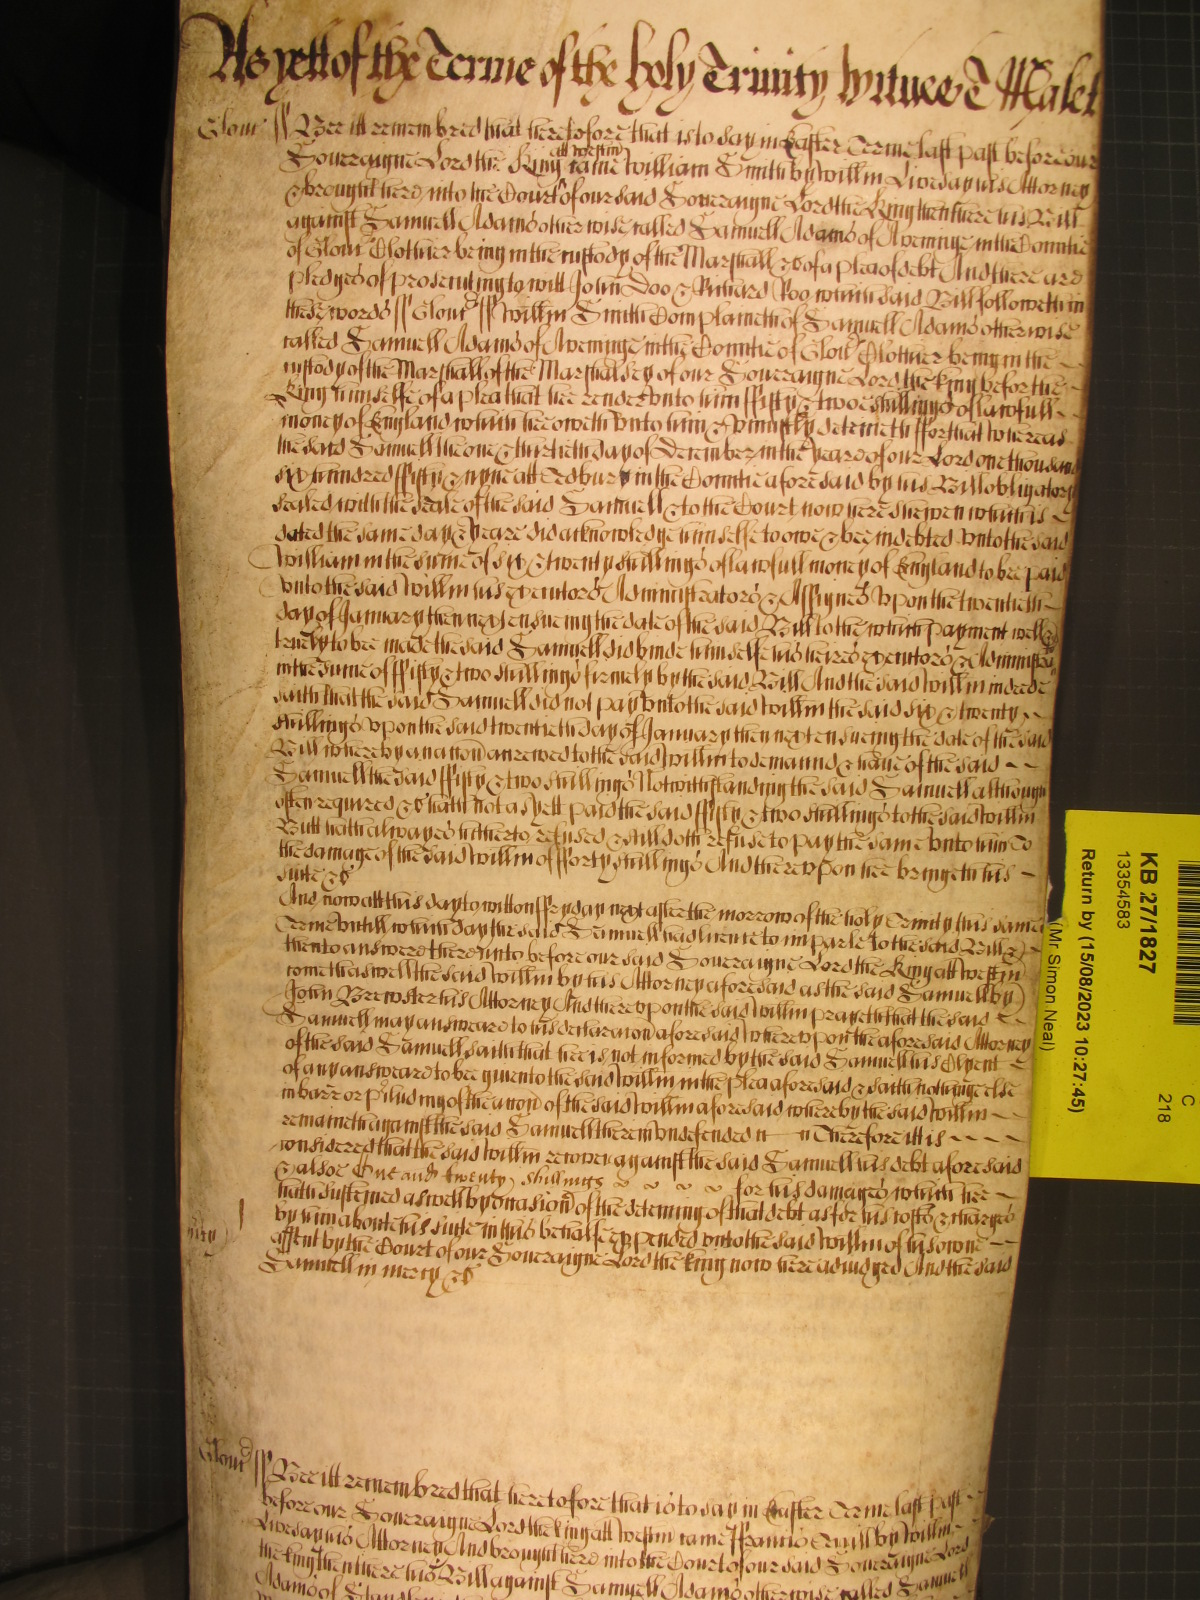 As yett of the Terme of the holy Trinity Witnes T Malet
Glouc ss Bee itt remembred that heretofore that is to say in Easter Terme last past before our
Soveraigne Lord the King att Westm came William Smith by Willm Liveday his Attorney
& brought here into the Court of our said Soveraigne Lord the King then there his Bill
against Samuell Adams otherwise called Samuell Adams of Aveninge in the Countie
of Glouc Clothier being in the custody of the Marshall &c of a plea of debt And there are
pledges of prosecuting to witt John Doo & Richard Roo which said Bill followeth in
these words ss Glouc ss Willm Smith Complaineth of Samuell Adams otherwise
called Samuell Adams of Aveninge in the Countie of Glouc Clothier being in the
custody of the Marshall of the Marshalsey of our Soveraigne Lord the King before the
King himselfe of a plea that hee render unto him ffifty & twoe shillings of lawfull
money of England which hee oweth unto him & uniustly deteineth ffor that whereas
the said Samuell the one & thirtieth day of December in the yeare of our Lord one thousand
six hundred ffifty & nyne att Tedbury in the Countie aforesaid by his Bill obligatory
sealed with the seale of the said Samuell & to the Court now here shewen which is
dated the same day & yeare did acknowledge himselfe to owe & bee indebted unto the said
William in the sume of six & twenty shillings of lawfull money of England to bee paid
unto the said Willm his Executors Administrators & Assignes upon the twentieth
day of January then next ensueing the date of the said Bill to the which payment well &
truely to bee made the said Samuell did binde himselfe his heires Executors & Administrators
in the sume of ffifty & two shillings firmely by the said Bill And the said Willm indeede
saith that the said Samuell did not pay unto the said Willm the said six & twenty
shillings upon the said twentieth day of January then next ensueing the date of the said
Bill whereby an accon accrewed to the said Willm to demaund & have of the said
Samuell the said ffifty & two shillings Notwithstanding the said Samuell although
often required &c hath not as yett paid the said ffifty & two shillings to the said Willm
Butt hath alwayes hitherto refused & still doth refuse to pay the same unto him To
the damage of the said Willm of fforty shillings And thereupon hee bringeth his
suite &c
And now att this day to witt on ffryday next after the morrow of the holy Trinity this same
Terme untill which day the said Samuell had licence to imparle to the said Bill &
then to answere thereunto before our said Soveraigne Lord the King att Westm
come the aswell the said Willm by his Attorney aforesaid as the said Samuell by
John Brewster his Attorney And thereupon the said Willm prayeth that the said
Samuell may answeare to his declaracon aforesaid whereupon the aforesaid Attorney
of the said Samuell saith that hee is not informed by the said Samuell his Clyent
of any answeare to bee given to the said Willm in the plea aforesaid & saith nothinge else
in barr or p'cluding of the accon of the said Willm aforesaid whereby the said Willm
remaineth against the said Samuell therein undefended Therefore itt is
considered that the said Willm recover against the said Samuell his debt aforesaid
& alsoe One and twenty shillings for his damages which hee
hath susteined aswell by occasion of the deteining of that debt as for his costs & charges
by him about his suite in this behalfe expended unto the said Willm of his owne
assent by the Court of our Soveraigne Lord the King now here adiudged And the said
Samuell in mercy &c
Glouc ss Bee itt remembred that heretofore that is to say in Easter Terme last past
before our Soveraigne Lord the King att Westm came ffrancis by Willm
Liveday his Attorney And brought here into the Court of our said Soveraigne Lord
the King then there his Bill against Samuell Adams otherwise called Samuell
Adams of
C
218
KB 27/1827
13354583
Return by (15/08/2023 10:27:45)
(Mr Simon Neal)